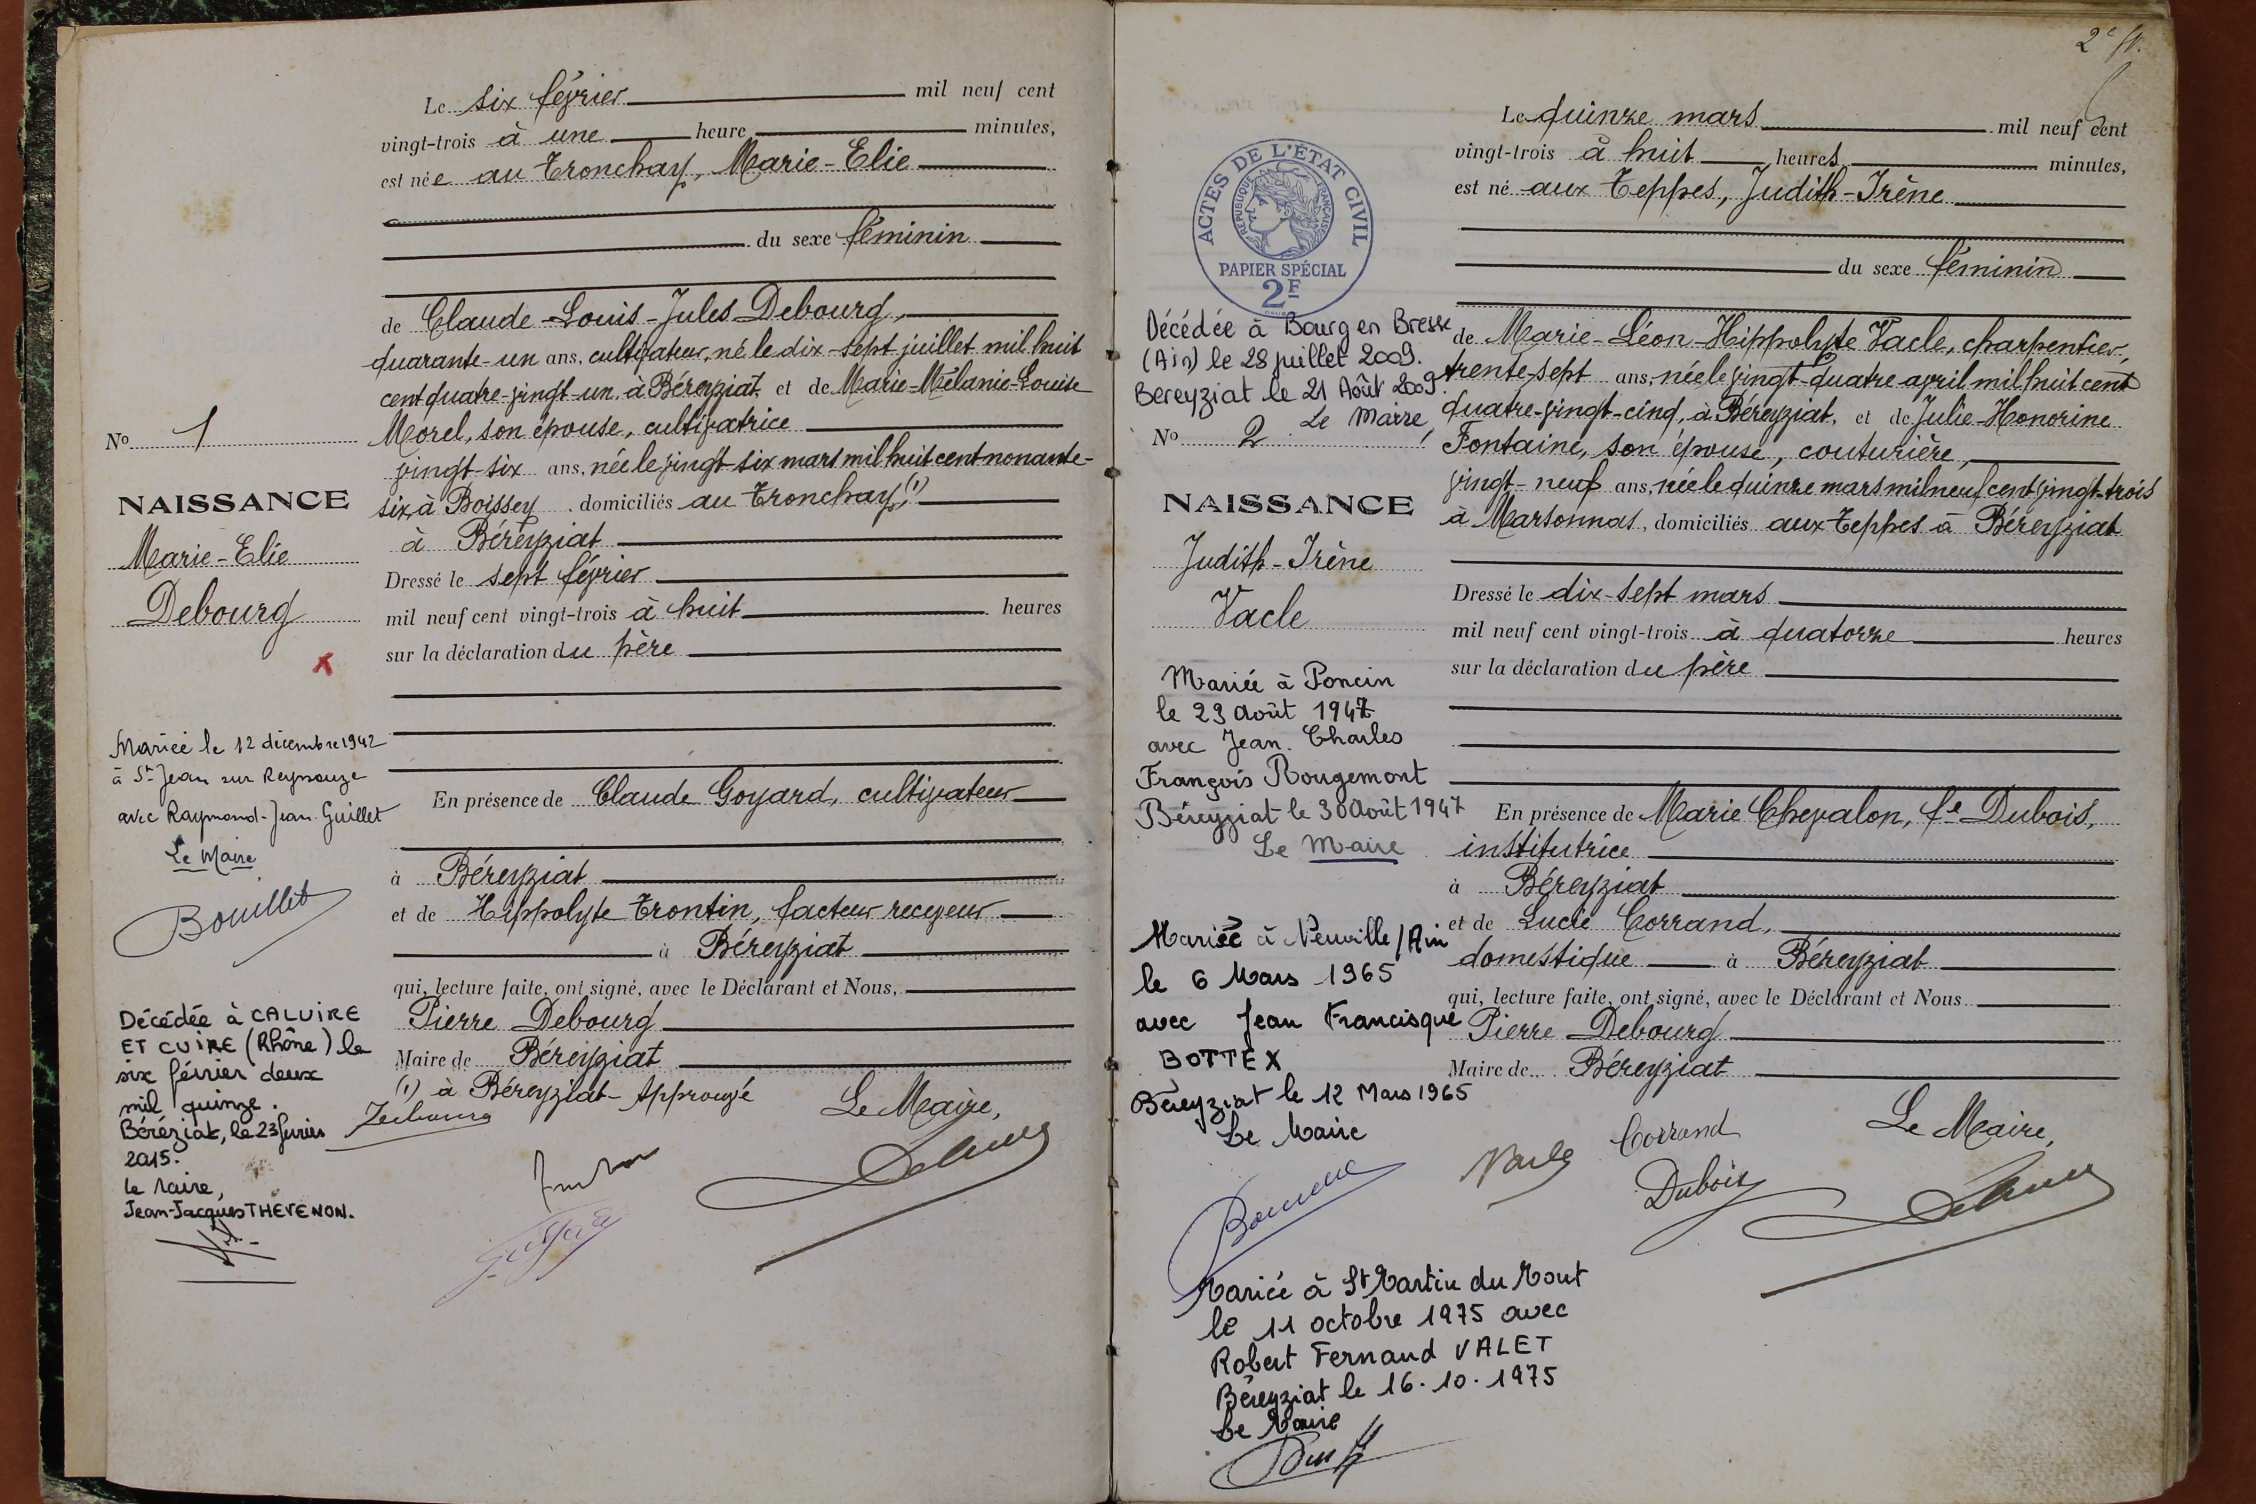 Le six février mil neuf cent
vingt-trois à une heure minutes,
est née au Tronchay, Marie-Elie
du sexe féminin
de Claude-Louis-Jules Debourg,
quarante-un ans, cultivateur, né le dix-sept juillet mil huit
cent quatre-vingt-un, à Béreyziat et de Marie-Mélanie-Louise
Morel, son épouse, cultivatrice
vingt-six ans, née le vingt-six mars mil huit cent nonante-
six, à Boissey, domiciliés au Tronchay, (1)
à Béreyziat
Dressé le sept février
mil neuf cent vingt-trois à huit heures
sur la déclaration du père
En présence de Claude Goyard, cultivateur
à Béreyziat
et de Hippolyte Trontin, facteur receveur
à Béreyziat
qui, lecture faite, ont signé, avec le Déclarant et Nous,
Pierre Debourg
Maire de Béreyziat
(1) à Béreyziat - Approuvé
Le Maire,
No 1
NAISSANCE
Marie-Elie
Debourg
x
Mariée le 12 décembre 1942
à St Jean sur Reyssouze
avec Raymond-Jean Guillet
Le Maire
Bouillet
Décédée à CALUIRE
ET CUIRE (Rhône) le
six février deux
mil quinze.
Béréziat, le 23 février
2015.
Le Maire,
Jean-Jacques THEVENON.
2e f.
ACTES DE L'ÉTAT CIVIL
RÉPUBLIQUE FRANÇAISE
PAPIER SPÉCIAL
2F
Le quinze mars mil neuf cent
vingt-trois à huit heures minutes,
est né aux Teppes, Judith-Irène
du sexe féminin
de Marie-Léon-Hippolyte Vacle, charpentier,
trente-sept ans, née le vingt-quatre avril mil huit cent
quatre-vingt-cinq, à Béreyziat, et de Julie-Honorine
Fontaine, son épouse, couturière,
vingt-neuf ans, née le quinze mars mil neuf cent vingt-trois
à Marsonnas, domiciliés aux Teppes à Béreyziat
Dressé le dix-sept mars
mil neuf cent vingt-trois à quatorze heures
sur la déclaration du père
En présence de Marie Chevalon, fe Dubois,
institutrice
à Béreyziat
et de Lucie Corrand,
domestique à Béreyziat
qui, lecture faite, ont signé, avec le Déclarant et Nous
Pierre Debourg
Maire de Béreyziat
Le Maire,
Corrand
Vacle
Dubois
Décédée à Bourg en Bresse
(Ain) le 28 juillet 2009.
Bereyziat le 21 Août 2009.
Le Maire,
No 2
NAISSANCE
Judith-Irène
Vacle
Mariée à Poncin
le 23 août 1947
avec Jean-Charles
François Rougemont
Béreyziat le 30 Août 1947
Le Maire
Mariée à Neuville/Ain
le 6 Mars 1965
avec Jean Francisque
BOTTEX
Béreyziat le 12 Mars 1965
Le Maire
Mariée à St Martin du Mont
le 11 octobre 1975 avec
Robert Fernand VALET
Béreyziat le 16.10.1975
Le Maire